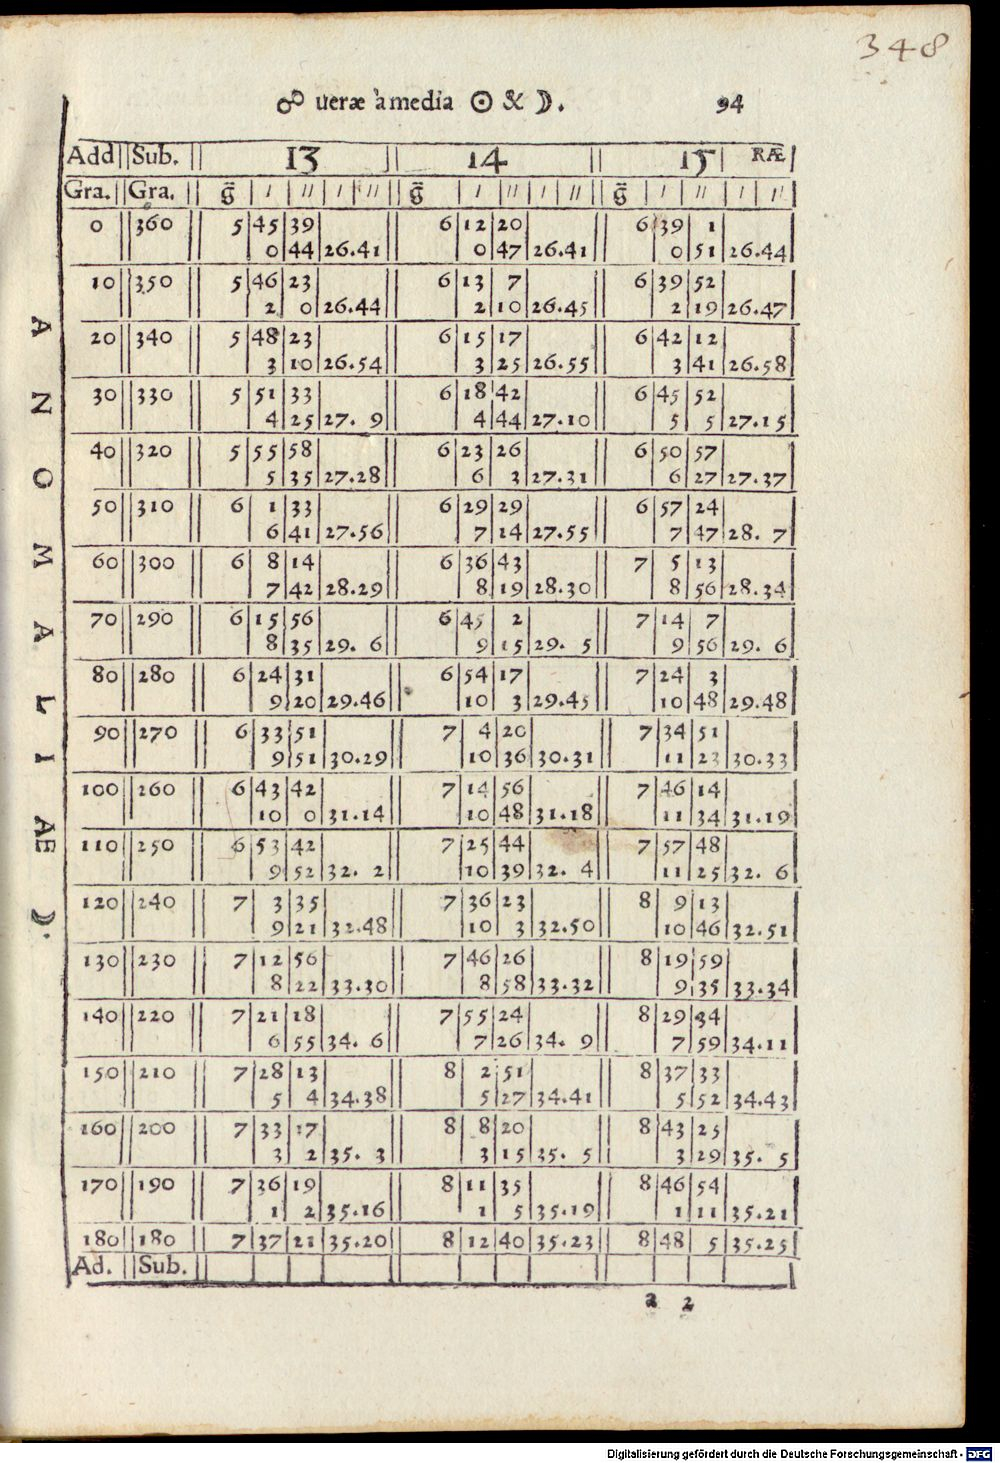 348
☍ ueræ à media ☉ & ☽. 94
Add Sub. 13 14 15 RÆ
Gra. Gra. g̃ ′ ″ ′ ″ g̃ ′ ″ ′ ″ g̃ ′ ″ ′ ″
0 360 5 45 39 6 12 20 6 39 1
0 44 26.41 0 47 26.41 0 51 26.44
10 350 5 46 23 6 13 7 6 39 52
2 0 26.44 2 10 26.45 2 19 26.47
20 340 5 48 23 6 15 17 6 42 12
3 10 26.54 3 25 26.55 3 41 26.58
30 330 5 51 33 6 18 42 6 45 52
4 25 27. 9 4 44 27.10 5 5 27.15
40 320 5 55 58 6 23 26 6 50 57
5 35 27.28 6 3 27.31 6 27 27.37
50 310 6 1 33 6 29 29 6 57 24
6 41 27.56 7 14 27.55 7 47 28. 7
60 300 6 8 14 6 36 43 7 5 13
7 42 28.29 8 19 28.30 8 56 28.34
70 290 6 15 56 6 45 2 7 14 7
8 35 29. 6 9 15 29. 5 9 56 29. 6
80 280 6 24 31 6 54 17 7 24 3
9 20 29.46 10 3 29.45 10 48 29.48
90 270 6 33 51 7 4 20 7 34 51
9 51 30.29 10 36 30.31 11 23 30.33
100 260 6 43 42 7 14 56 7 46 14
10 0 31.14 10 48 31.18 11 34 31.19
110 250 6 53 42 7 25 44 7 57 48
9 52 32. 2 10 39 32. 4 11 25 32. 6
120 240 7 3 35 7 36 23 8 9 13
9 21 32.48 10 3 32.50 10 46 32.51
130 230 7 12 56 7 46 26 8 19 59
8 22 33.30 8 58 33.32 9 35 33.34
140 220 7 21 18 7 55 24 8 29 34
6 55 34. 6 7 26 34. 9 7 59 34.11
150 210 7 28 13 8 2 51 8 37 33
5 4 34.38 5 27 34.41 5 52 34.43
160 200 7 33 17 8 8 20 8 43 25
3 2 35. 3 3 15 35. 5 3 29 35. 5
170 190 7 36 19 8 11 35 8 46 54
1 2 35.16 1 5 35.19 1 11 35.21
180 180 7 37 21 35.20 8 12 40 35.23 8 48 5 35.25
Ad. Sub.
ANOMALIAE ☽.
a 2
Digitalisierung gefördert durch die Deutsche Forschungsgemeinschaft - DFG